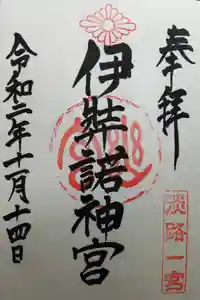 奉拝
伊弉諾神宮
淡路一宮
令和二年十一月十四日